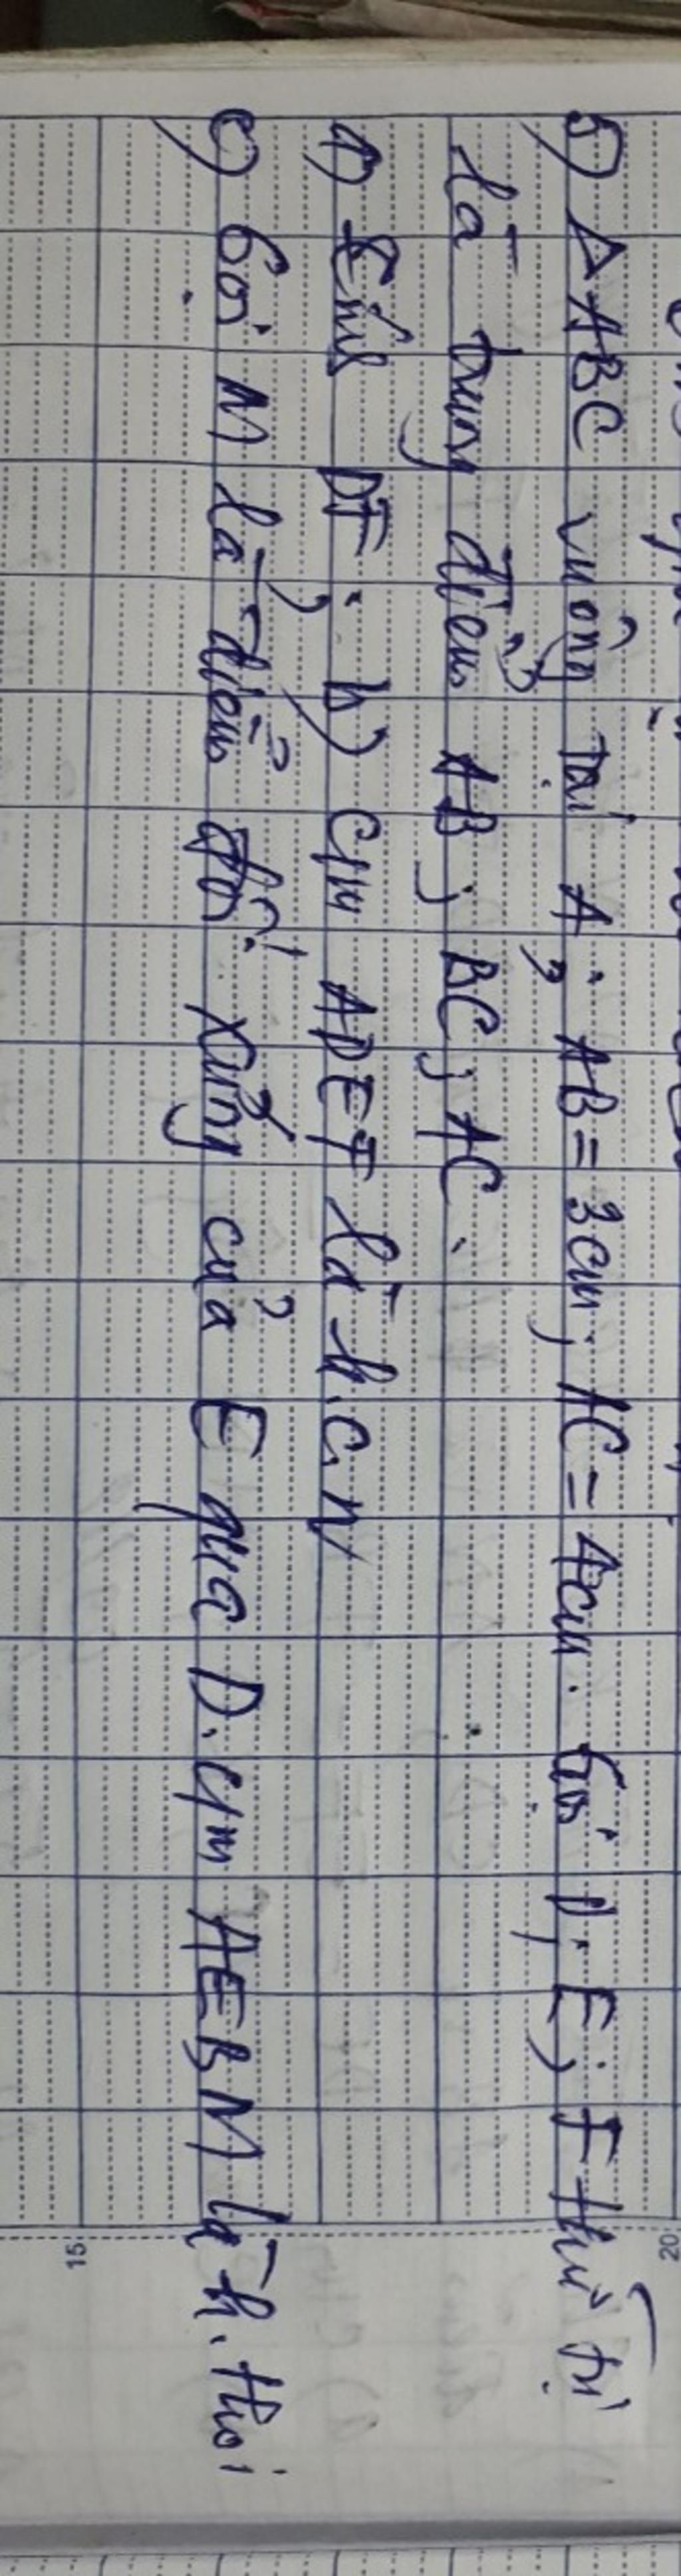 5) ΔABC vuông tại A; AB = 3cm; AC = 4cm. Gọi D; E; F thứ tự
là trung điểm AB; BC; AC.
a) Tính DF; b) Cm ADEF là h.c.n
c) Gọi M là điểm đối xứng của E qua D. Cm AEBM là h.thoi
15
20